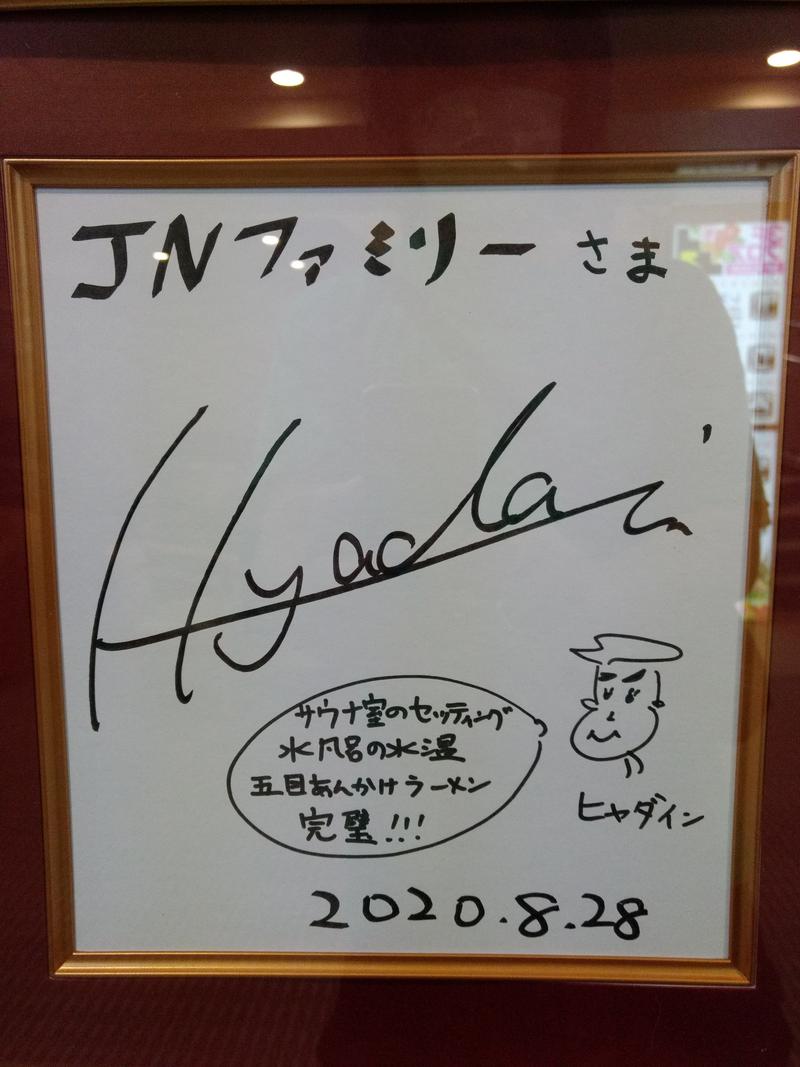 JNファミリー さま
Hyadain
サウナ室のセッティング
水風呂の水温
五目あんかけラーメン
完璧!!!
ヒャダイン
2020.8.28